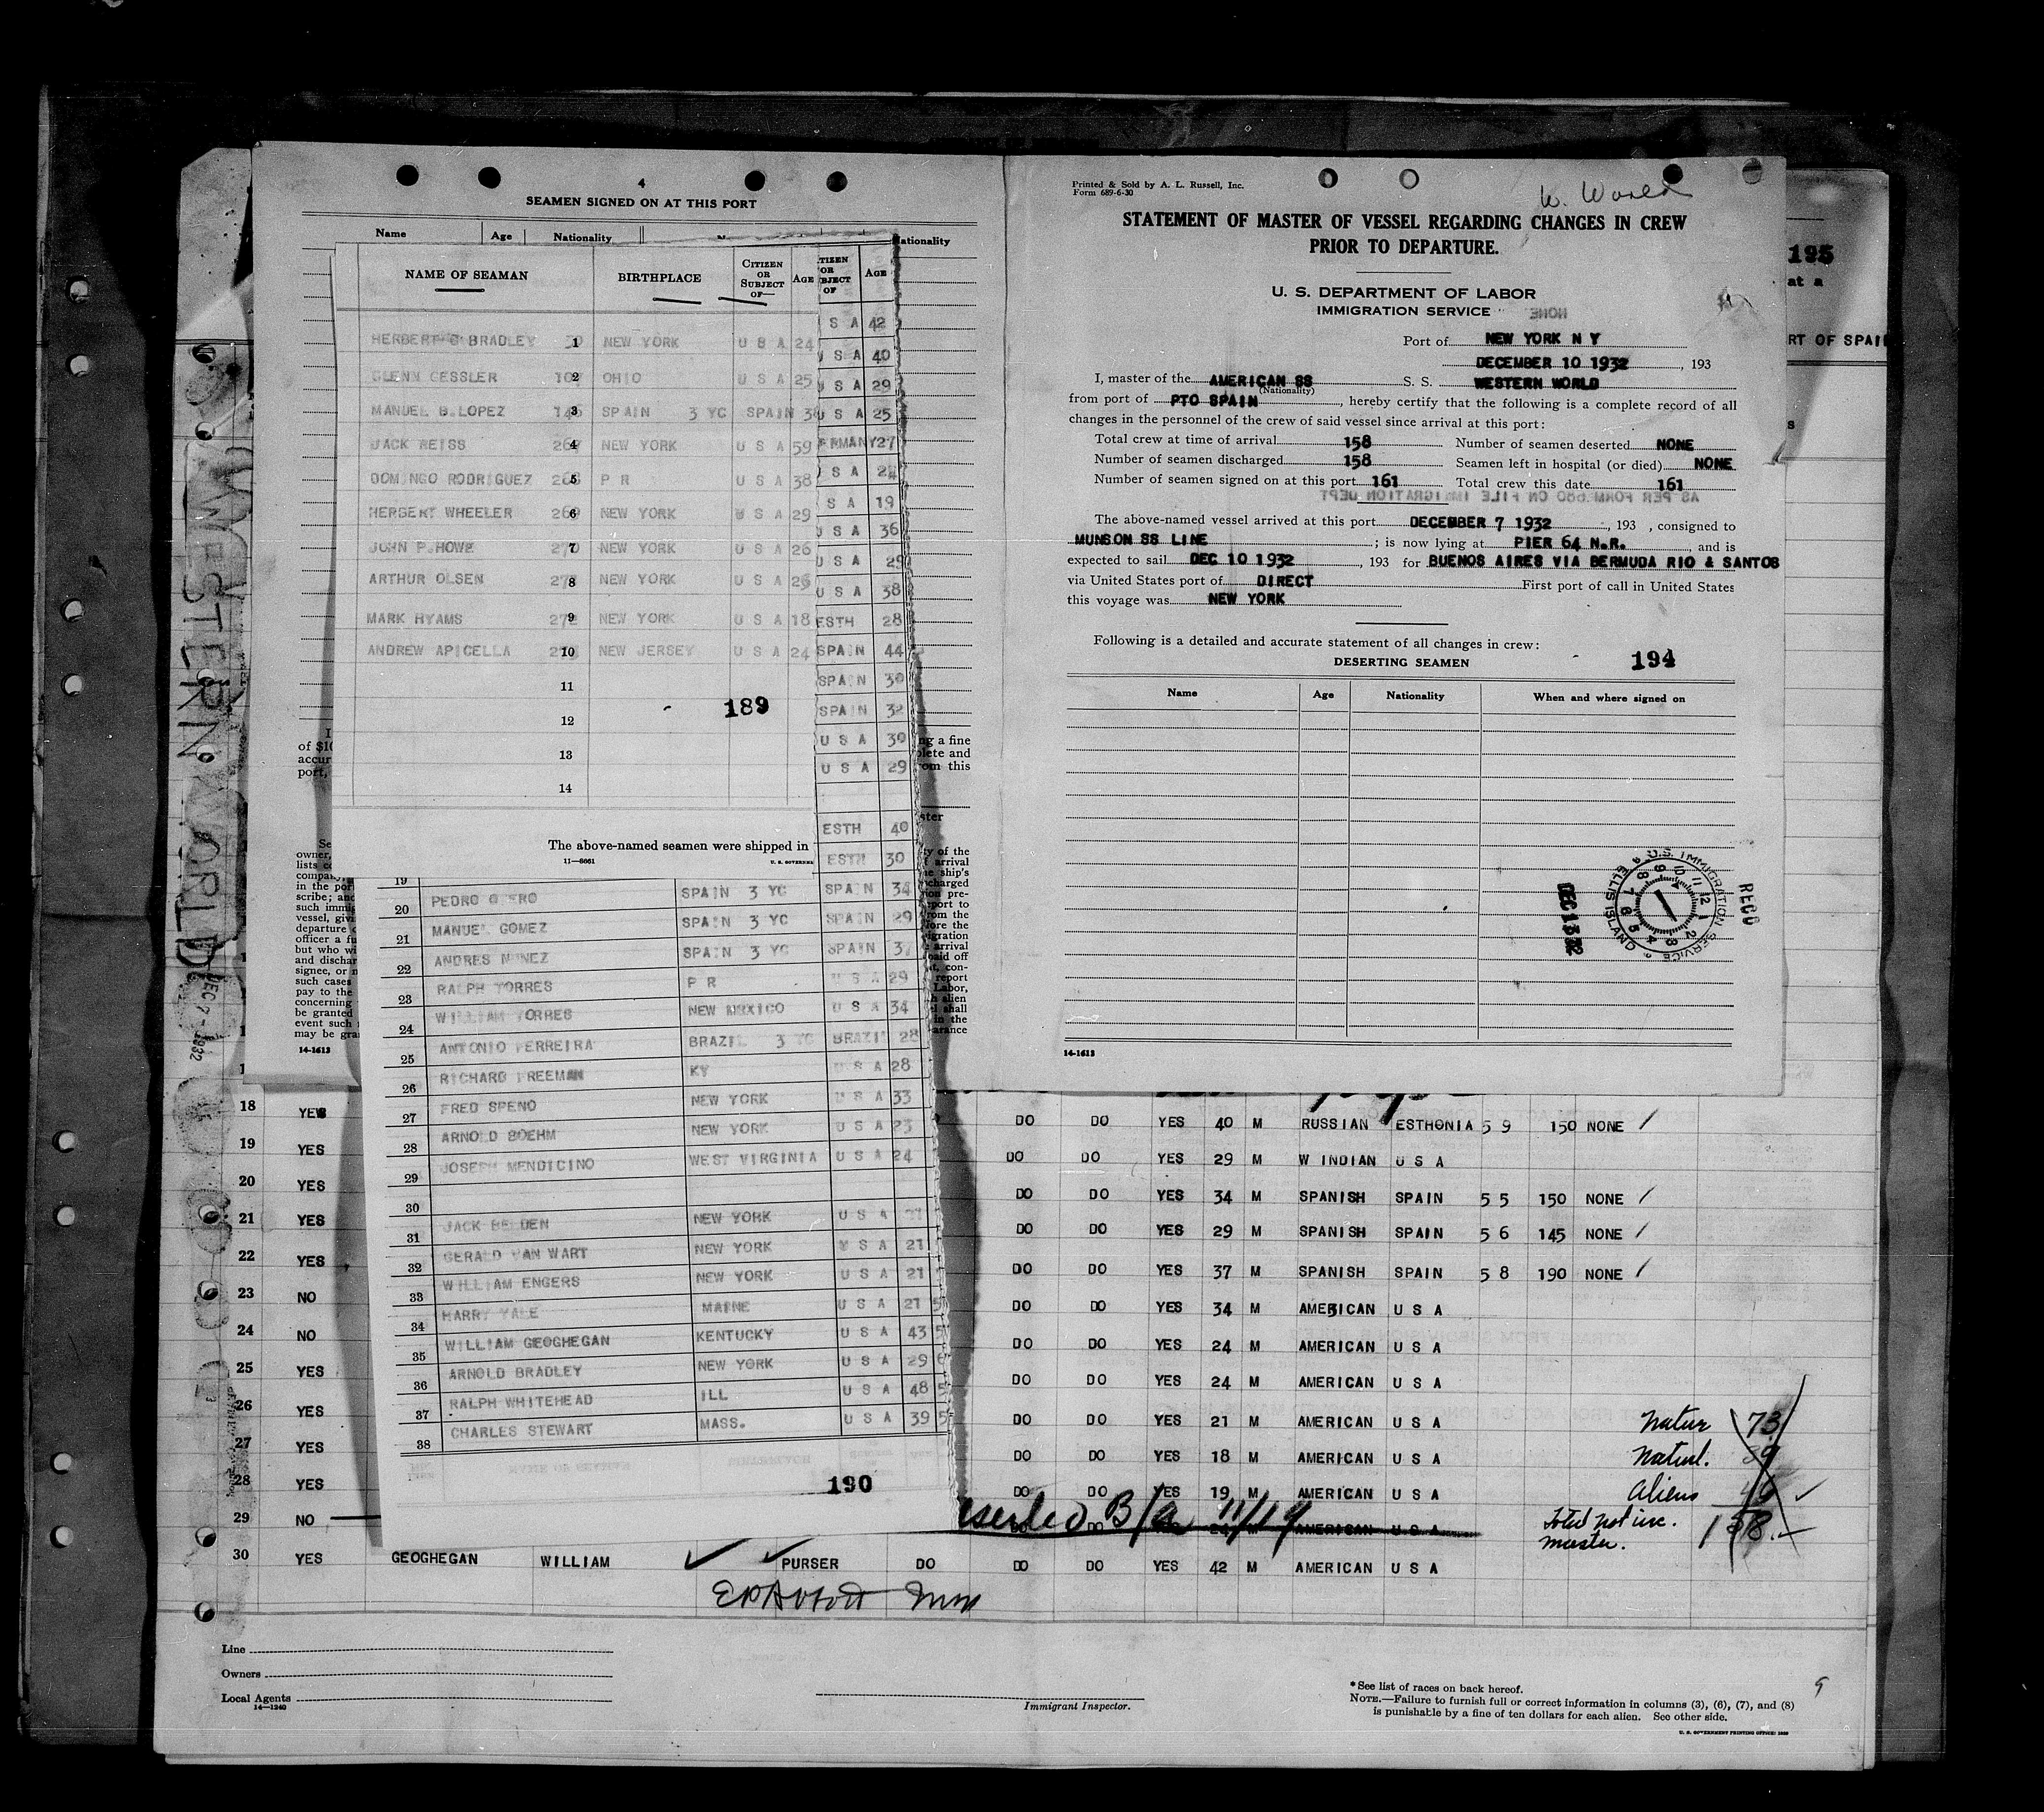 4
SEAMEN SIGNED ON AT THIS PORT
Name Age Nationality
ationality
NAME OF SEAMAN BIRTHPLACE CITIZEN OR SUBJECT OF— Age
TIZEN OR BJECT OF Age
HERBERT G BRADLEY 1 NEW YORK U S A 24
GLENN GESSLER 2 OHIO U S A 25
MANUEL B LOPEZ 3 SPAIN 3 YC SPAIN
JACK WEISS 4 NEW YORK U S A 59
DOMINGO RODRIGUEZ 5 P R U S A 38
HERBERT WHEELER 6 NEW YORK U S A 29
JOHN P HOWE 7 NEW YORK U S A 26
ARTHUR OLSEN 8 NEW YORK U S A 26
MARK HYAMS 9 NEW YORK U S A 18
ANDREW APICELLA 10 NEW JERSEY U S A 24
11
12
13
14
189
The above-named seamen were shipped in
11—6661
S A 42
S A 40
U S A 29
U S A 25
ERMANY 27
S A
S A 19
U S A 36
U S A 29
U S A 38
ESTH 28
SPAIN 44
SPAIN 30
SPAIN 32
U S A 39
U S A 29
ESTH 40
ESTH 30
19
20 PEDRO SPAIN 3 YC SPAIN 34
21 MANUEL GOMEZ SPAIN 3 YC SPAIN 29
22 ANDRES NUNEZ SPAIN 3 YC SPAIN 37
23 RALPH TORRES P R U S A 29
24 WILLIAM TORRES NEW MEXICO U S A 34
25 ANTONIO FERREIRA BRAZIL 3 YC BRAZIL 28
26 RICHARD FREEMAN KY U S A 28
27 FRED SPENO NEW YORK U S A 33
28 ARNOLD BOEHM NEW YORK U S A 23
29 JOSEPH MENDICINO WEST VIRGINIA U S A 24
30
31 JACK BELDEN NEW YORK U S A 21
32 GERALD VAN WART NEW YORK U S A 21
33 WILLIAM ENGERS NEW YORK U S A 21
34 HARRY YALE MAINE U S A 21
35 WILLIAM GEOGHEGAN KENTUCKY U S A 43
36 ARNOLD BRADLEY NEW YORK U S A 29
37 RALPH WHITEHEAD ILL U S A 48
38 CHARLES STEWART MASS. U S A 39
190
I
of $10
accur
port,
ng a fine
plete and
om this
ster
Se
owner,
lists co
company
in the por
scribe; and
such immig
vessel, givi
departure
officer a fu
but who wi
and dischar
signee, or m
such cases
pay to the
concerning
be granted
event such
may be gra
14-1613
ty of the
arrival
he ship's
charged
ion pre-
port to
rom the
fore the
igration
arrival
paid off
t, con-
report
Labor,
h alien
el shall
in the
arance
WESTERN WORLD
DEC 7 - 1932
Printed & Sold by A. L. Russell, Inc.
Form 689-6-30
W. World
STATEMENT OF MASTER OF VESSEL REGARDING CHANGES IN CREW
PRIOR TO DEPARTURE.
U. S. DEPARTMENT OF LABOR
IMMIGRATION SERVICE
NONE
Port of NEW YORK N Y
DECEMBER 10 1932, 193
I, master of the AMERICAN SS (Nationality) S. S. WESTERN WORLD
from port of PTO SPAIN, hereby certify that the following is a complete record of all
changes in the personnel of the crew of said vessel since arrival at this port:
Total crew at time of arrival 158 Number of seamen deserted NONE
Number of seamen discharged 158 Seamen left in hospital (or died) NONE
Number of seamen signed on at this port 161 Total crew this date 161
AS PER FORM 680 ON FILE IMIGRATION DEPT
The above-named vessel arrived at this port DECEMBER 7 1932, 193 , consigned to
MUNSON SS LINE; is now lying at PIER 64 N.R., and is
expected to sail DEC 10 1932, 193 for BUENOS AIRES VIA BERMUDA RIO & SANTOS
via United States port of DIRECT First port of call in United States
this voyage was NEW YORK
Following is a detailed and accurate statement of all changes in crew:
DESERTING SEAMEN 194
Name Age Nationality When and where signed on
RECD
U.S. IMMIGRATION SERVICE ELLIS ISLAND
DEC 13 32
14-1613
195
at a
RT OF SPAIN
s
18 YES DO DO YES 40 M RUSSIAN ESTHONIA 5 9 150 NONE /
19 YES DO DO YES 29 M W INDIAN U S A
20 YES DO DO YES 34 M SPANISH SPAIN 5 5 150 NONE /
21 YES DO DO YES 29 M SPANISH SPAIN 5 6 145 NONE /
22 YES DO DO YES 37 M SPANISH SPAIN 5 8 190 NONE /
23 NO DO DO YES 34 M AMERICAN U S A
24 NO DO DO YES 24 M AMERICAN U S A
25 YES DO DO YES 24 M AMERICAN U S A
26 YES DO DO YES 21 M AMERICAN U S A
27 YES DO DO YES 18 M AMERICAN U S A
28 YES DO DO YES 19 M AMERICAN U S A
29 NO DO DO 24 M AMERICAN U S A
eserted B/A 11/19
30 YES GEOGHEGAN WILLIAM PURSER DO DO DO YES 42 M AMERICAN U S A
Natur 73
Naturl. 39
Aliens 46
Total not inc. 158
master.
Line
Owners
Local Agents
14—1240
Immigrant Inspector.
*See list of races on back hereof.
NOTE.—Failure to furnish full or correct information in columns (3), (6), (7), and (8)
is punishable by a fine of ten dollars for each alien. See other side.
U. S. GOVERNMENT PRINTING OFFICE:
9